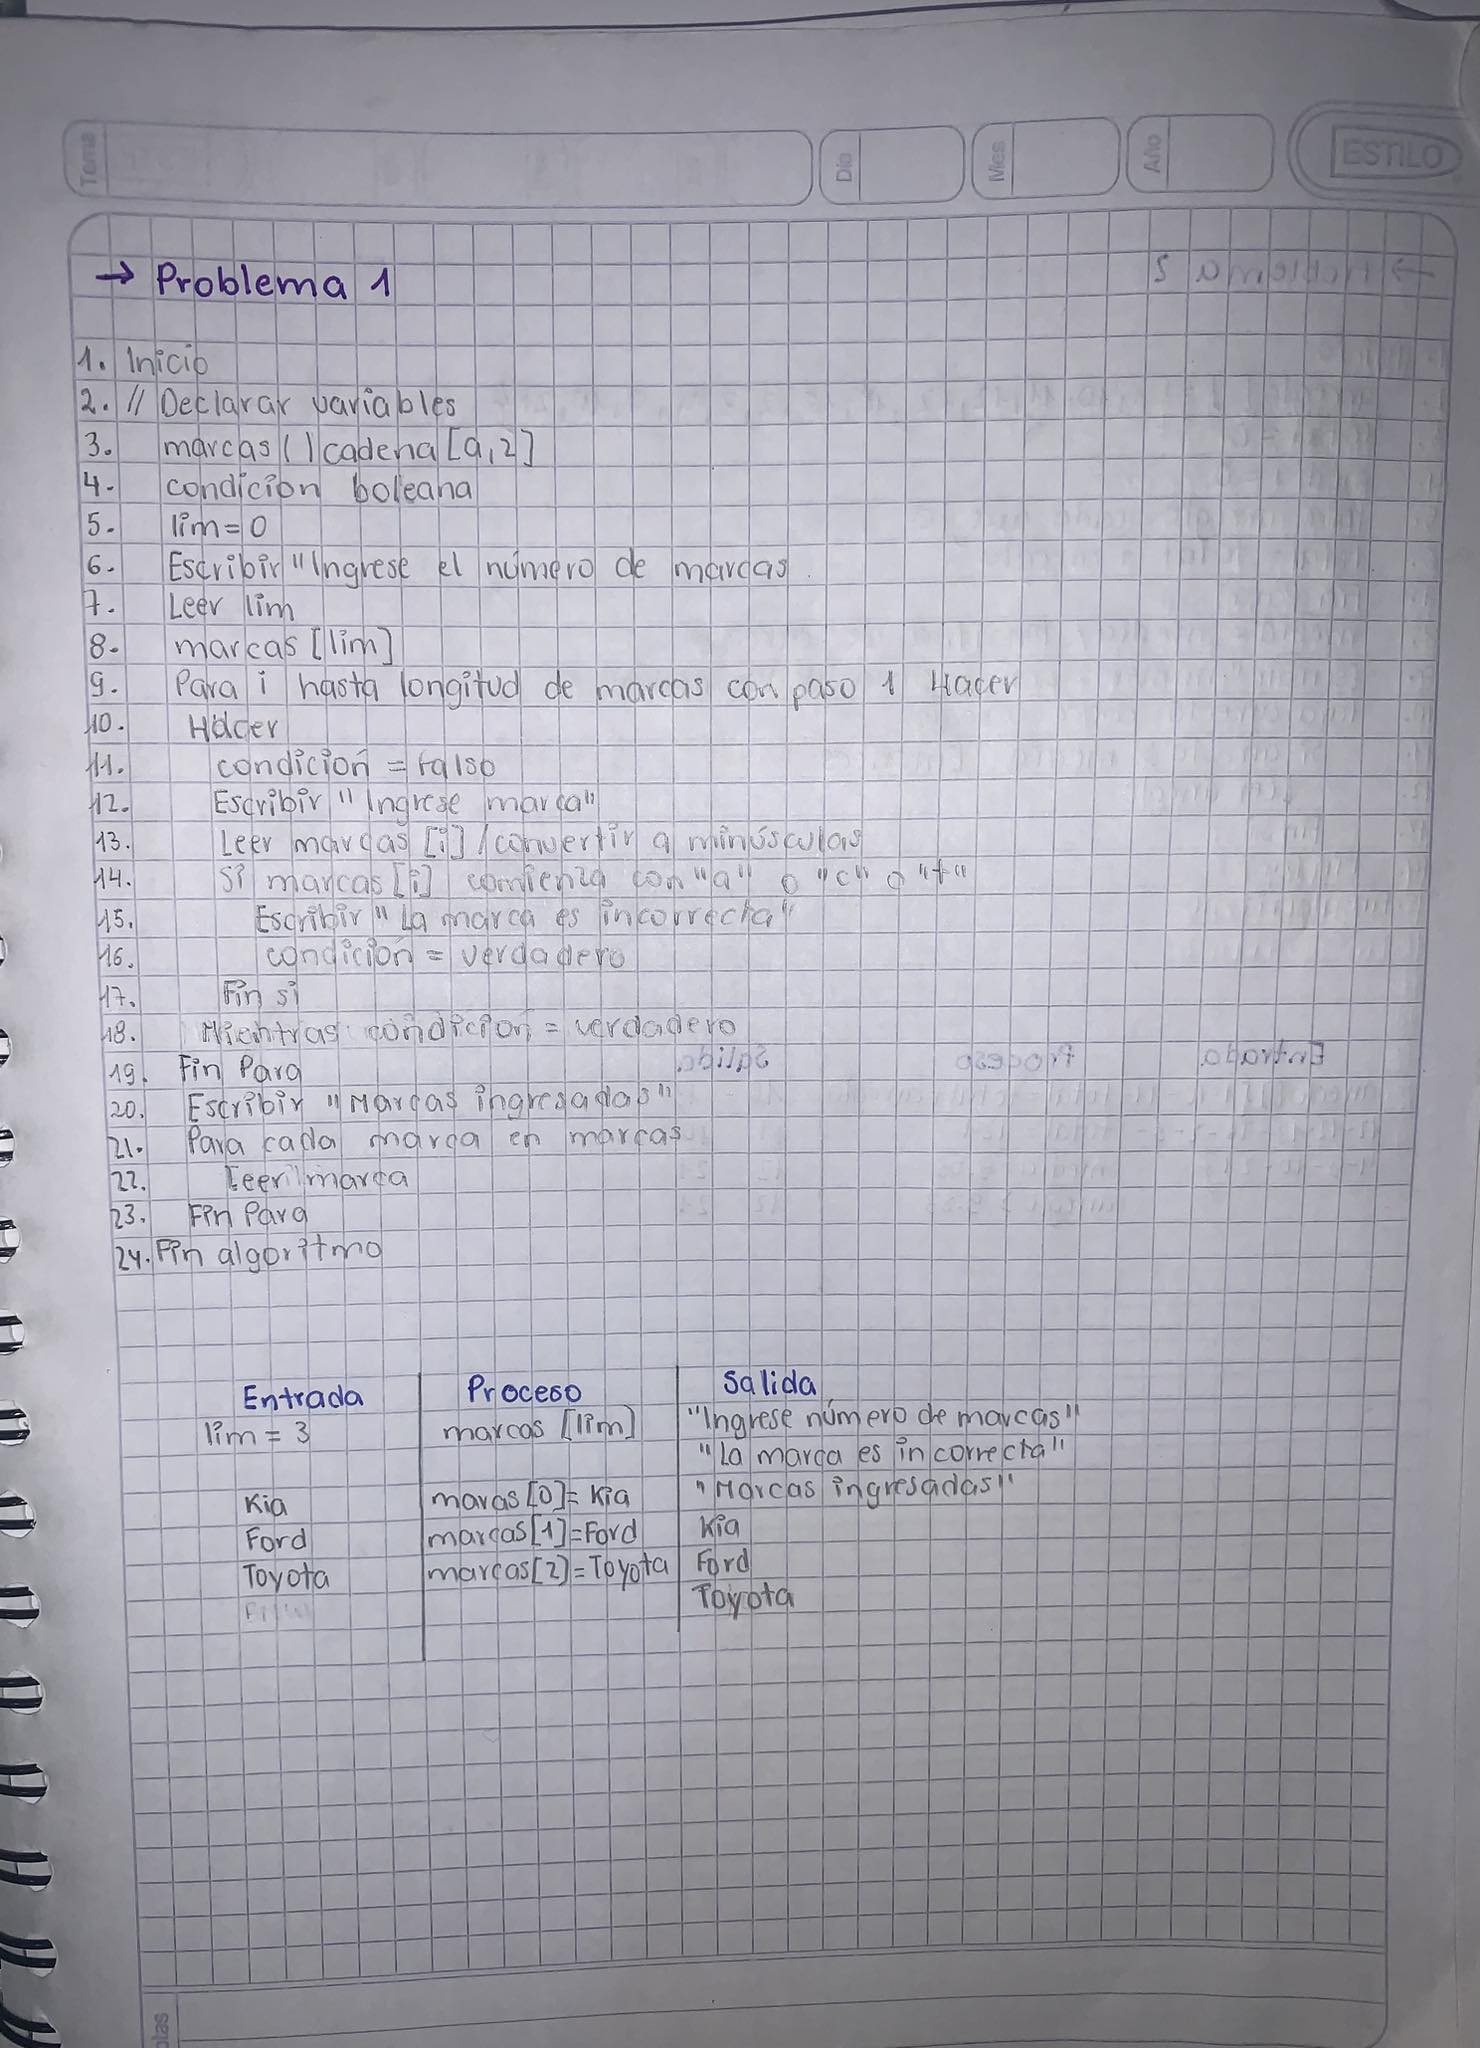 Tema
Día
Mes
Año
ESTILO
→ Problema 1
1. Inicio
2. // Declarar variables
3. marcas ( ) cadena [a,z]
4. condicion boleana
5. lim = 0
6. Escribir "Ingrese el número de marcas
7. Leer lim
8. marcas [lim]
9. Para i hasta longitud de marcas con paso 1 Hacer
10. Hacer
11. condición = falso
12. Escribir "Ingrese marca"
13. Leer marcas [i] / convertir a minúsculas
14. Si marcas [i] comienza con "a" o "c" o "t"
15. Escribir "La marca es incorrecta"
16. condición = verdadero
17. Fin si
18. Mientras condición = verdadero
19. Fin Para
20. Escribir "Marcas ingresadas"
21. Para cada marca en marcas
22. Leer marca
23. Fin Para
24. Fin algoritmo
Entrada Proceso Salida
lim = 3 marcas [lim] "Ingrese número de marcas"
"La marca es incorrecta"
Kia maras [0] = Kia "Marcas ingresadas"
Ford marcas [1] = Ford Kia
Toyota marcas [2] = Toyota Ford
Toyota